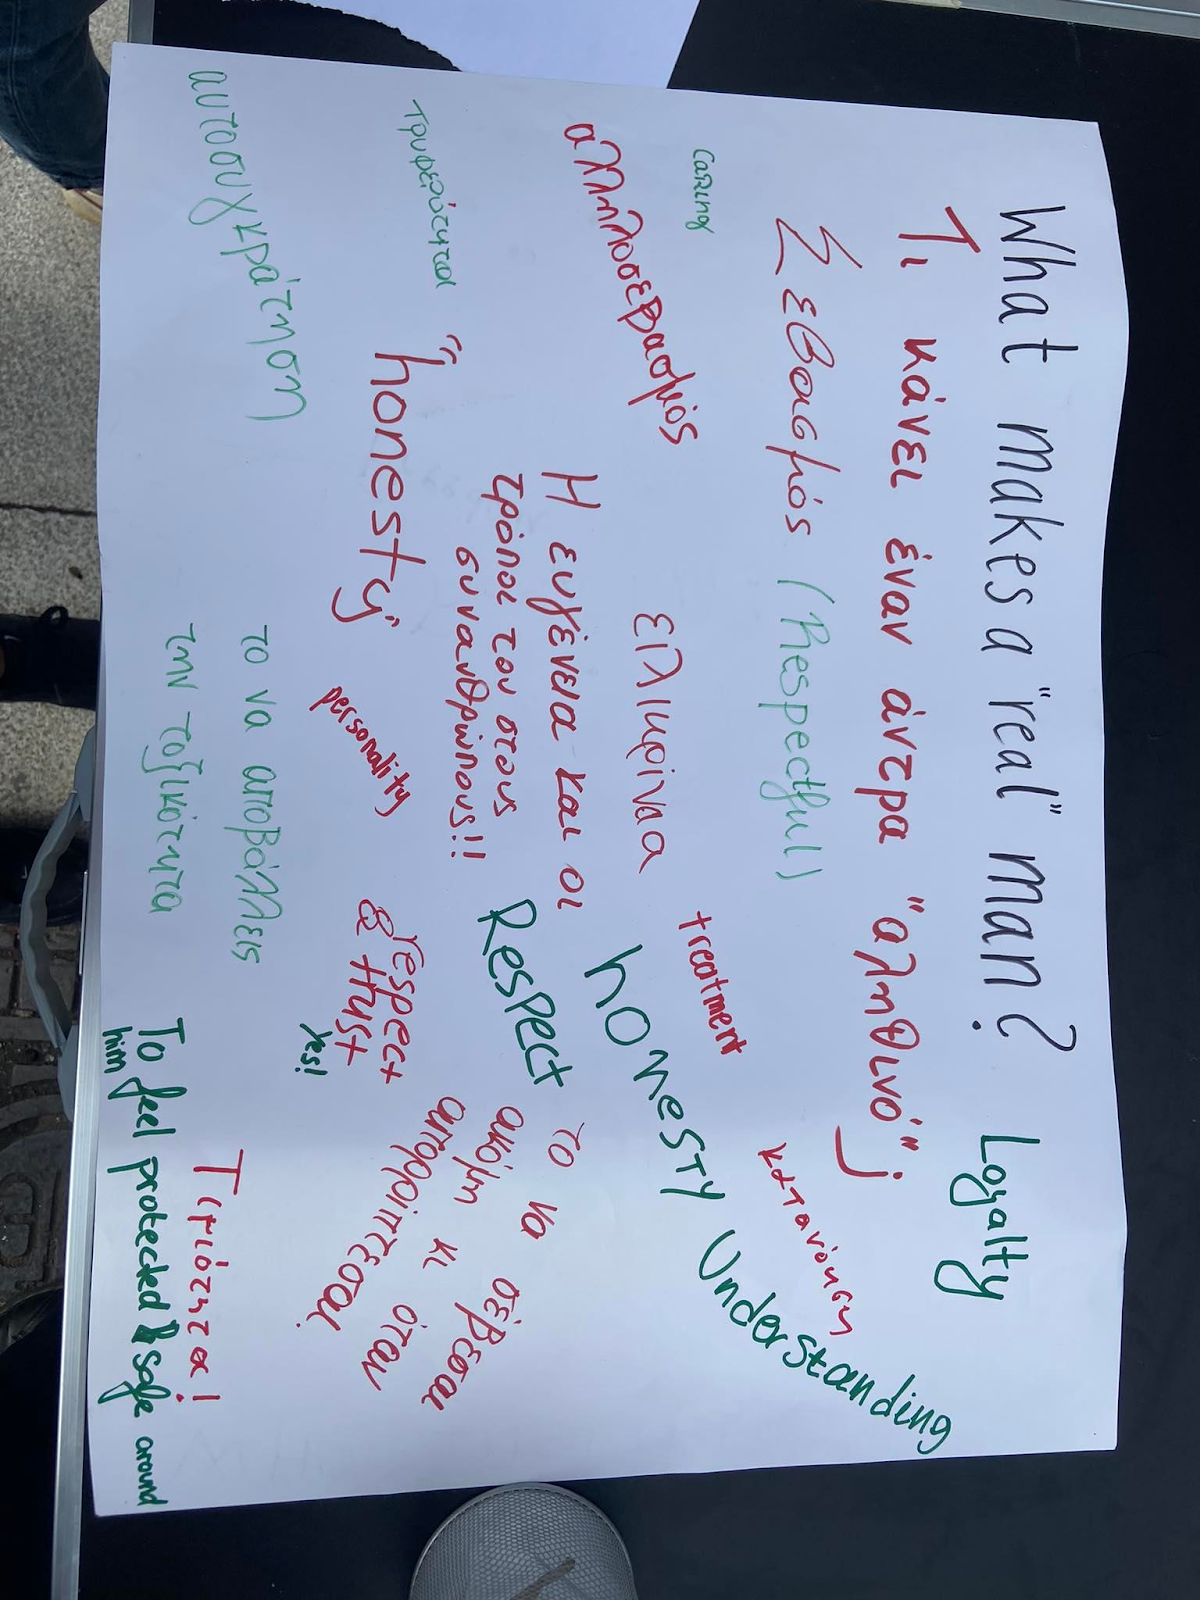 What makes a "real" man?
Loyalty
Τι κάνει έναν άντρα "αληθινό";
Σεβασμός (Respectful)
κατανόηση
caring
treatment
Understanding
αλληλοσεβασμός
ειλικρίνια
honesty
Η ευγένεια και οι
τρόποι του στους
συνανθρώπους!!
Respect
το να σέβεσαι
ακόμη κι όταν
απορρίπτεσαι.
τρυφερότητα
"honesty"
personality
respect
& trust
Yes!
αυτοσυγκράτηση
το να αποβάλλεις
την τοξικότητα
Τιμιότητα!
To feel protected & safe around
him